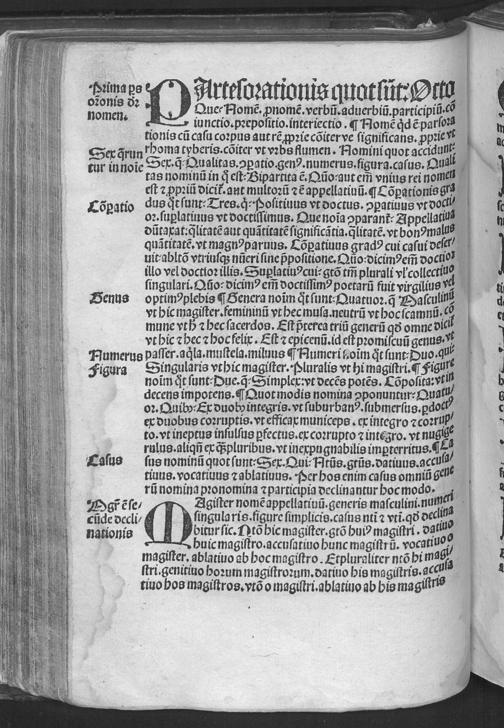 Prima ps
orōnis dr̄
nomen.
PArtes orationis quot sūt: Octo
Que? Nomē. pnomē. verbū. aduerbiū. participiū. cō
iunctio. prepositio. interiectio. ¶ Nomē qd ē pars ora
tionis cū casu corpus aut rē, pprie cōiter ve significans. pprie vt
Sex qrun
tur in noīe
rhoma tyberis. cōiter vt vrbs flumen. Nomini quot accidunt:
Sex. q: Qualitas. cōpatio. genꝰ. numerus. figura. casus. Quali
tas nominū in q est: Bipartita ē. Quō: aut em̄ vnius rei nomen
est & ppriū dicit̄. aut multorū & ē appellatiuū. ¶ Cōpationis gra
Cōpatio
dus qt sunt: Tres. q: Positiuus vt doctus. cōpatiuus vt docti-
or. suplatiuus vt doctissimus. Que noīa cōparant̄: Appellatiua
dūtaxat: qlitatē aut quātitatē significātia. qlitatē. vt bonꝰ malus
quātitatē. vt magnꝰ paruus. Cōpatiuus gradꝰ cui casui deser-
uit: abltō vtriusqꝫ nūeri sine ppositione. Quō: dicimꝰ em̄ doctior
illo vel doctior illis. Suplatiuꝰ cui: gtō tm̄ plurali vl' collectiuo
singulari. Quō: dicimꝰ em̄ doctissimꝰ poetarū fuit virgilius vel
Genus
optimꝰ plebis ¶ Genera noīm qt sunt: Quatuor. q Masculinū
vt hic magister. femininū vt hec musa. neutrū vt hoc scamnū. cō
mune vt hic & hec sacerdos. Est pterea triū generū qd omne dicit̄
vt hic & hec & hoc felix. Est & epicenū. id est promiscuū genus. vt
Numerus
passer. aqla. mustela. miluus ¶ Numeri noīm qt sunt: Duo. qui:
Figura
Singularis vt hic magister. Pluralis vt hi magistri. ¶ Figure
noīm qt sunt: Due. q: Simplex: vt decēs potēs. Cōposita: vt in
decens impotens. ¶ Quot modis nomina cōponuntur: Quatu-
or. Quibꝰ: Ex duobꝰ integris. vt suburbanꝰ. submersus. pdoctꝰ
ex duobus corruptis. vt efficax municeps. ex integro & corrup-
to. vt ineptus insulsus pfectus. ex corrupto & integro. vt nugige
rulus. aliqū ex cōpluribus. vt inexpugnabilis imperterritus. ¶ Ca
Casus
sus nominū quot sunt: Sex. Qui: Ntūs. gtūs. datiuus. accusa-
tiuus. vocatiuus & ablatiuus. Per hos enim casus omniū gene
rū nomina pronomina & participia declinantur hoc modo.
Mgr̄ ē se
cūde decli
nationis
MAgister nomē appellatiuū. generis masculini. numeri
singularis. figure simplicis. casus nti & vti. qd declina
bitur sic. Ntō hic magister. gtō huiꝰ magistri. datiuo
huic magistro. accusatiuo hunc magistrū. vocatiuo o
magister. ablatiuo ab hoc magistro. Et pluraliter ntō hi magi-
stri. genitiuo horum magistrorum. datiuo his magistris. accusa
tiuo hos magistros. vtō o magistri. ablatiuo ab his magistris